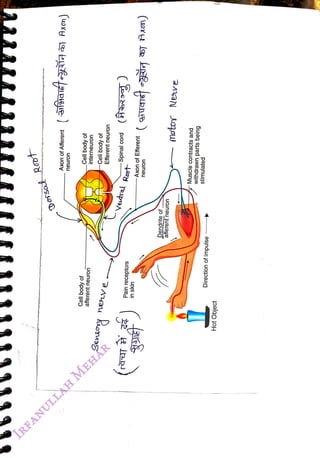 Dorsal Root
Axon of Afferent
neuron
(अभिवाही न्यूरॉन का Axon)
Cell body of
interneuron
Cell body of
Efferent neuron
Spinal cord
(मेरूरज्जु)
Ventral Root
Axon of Efferent
neuron
(अपवाही न्यूरॉन का Axon)
motor Nerve
Cell body of
afferent neuron
Sensory nerve
Pain receptors
in skin
(त्वचा में दर्द
ग्राही)
Dendrite of
afferent neuron
Muscle contracts and
withdrawn parts being
stimulated
Direction of impulse
Hot Object
IRFANULLAH MEHAR